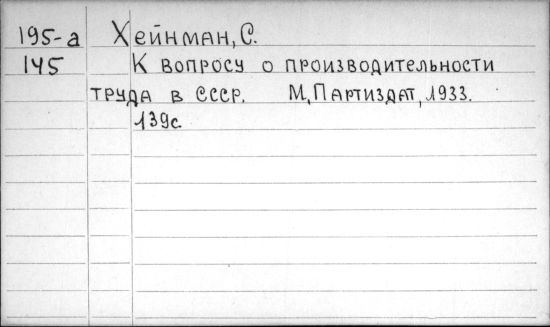 195-а Хейнман, С.
145 К вопросу о производительности
труда в СССР. М, Партиздат, 1933.
139с.